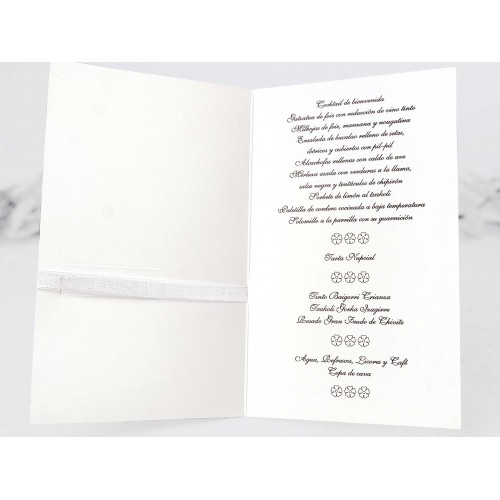 Cocktail de bienvenida
con reducción de vino tinto
Milhojas de foie, manzana y nougatina
Ensalada de bacalao relleno de setas,
ibéricos y cubiertos con pil-pil
Alcachofas rellenas con caldo de ave
Merluza asada con verduras a la llama,
salsa negra y tentáculos de chipirón
Sorbete de limón al txakoli
de cordero cocinada a baja temperatura
Solomillo a la parrilla con su guarnición
Tarta Nupcial
Tinto Baigorri Crianza
Txakoli Gorka Izagirre
Rosado Gran Feudo de Chivite
Agua, Refrescos, Licores y Café
Copa de cava